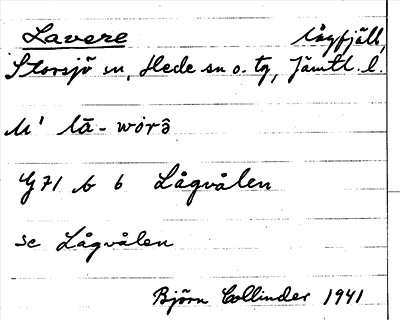 Lavere lågfjäll,
Storsjö sn, Hede sn o. tg, Jämtl. l.
lā- wörə̂
G 71 b 6 Lågvålen
se Lågvålen
Björn Collinder 1941